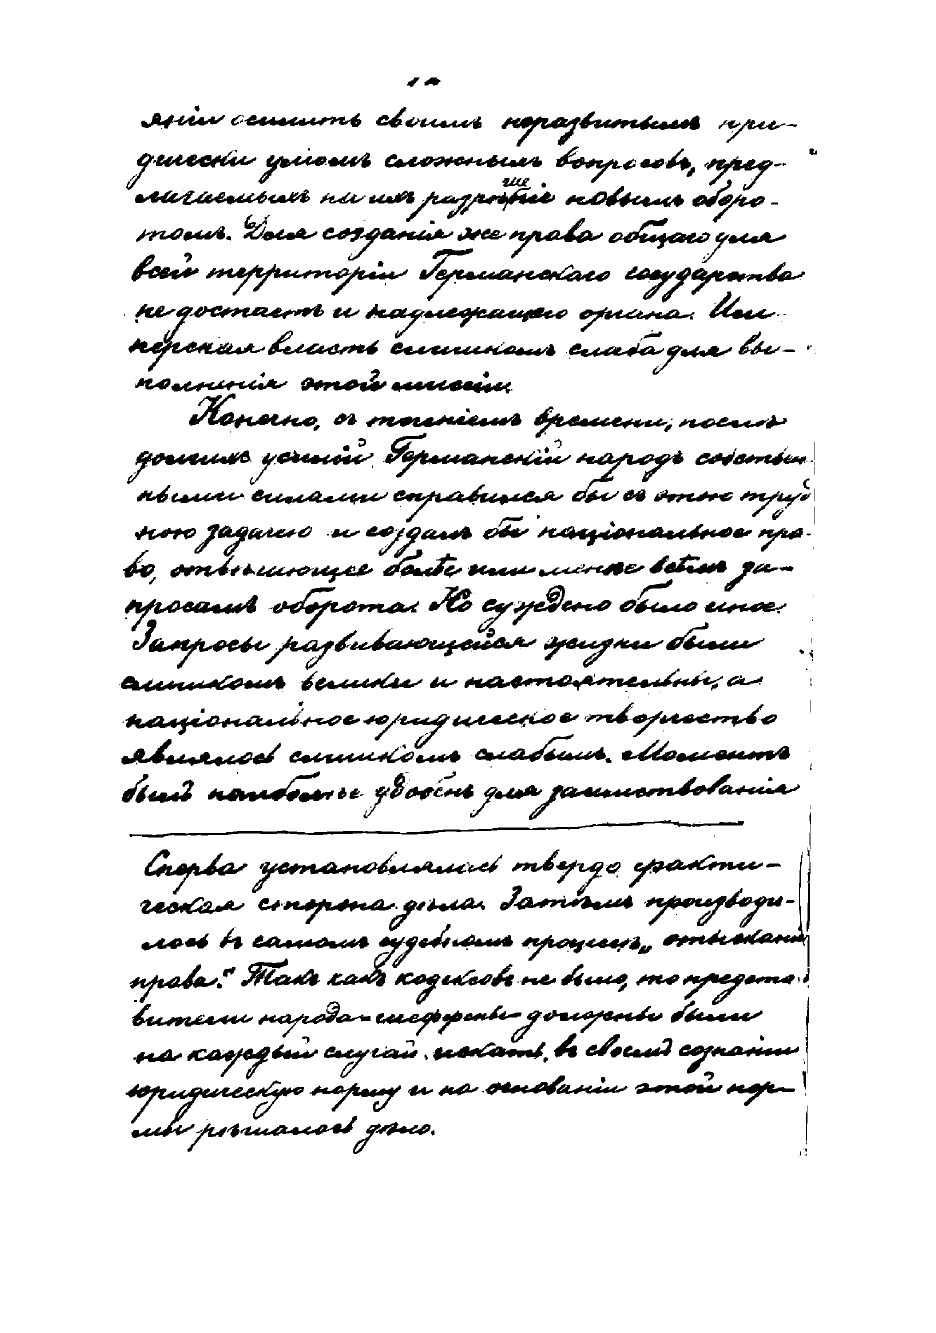 яніи осилить своимъ неразвитымъ юри-
дически умомъ сложныхъ вопросовъ, пред-
лагаемыхъ на ихъ разрѣшеніе новымъ оборо-
томъ. Для созданія же права общаго для
всей территоріи Германскаго государства
не достаетъ и надлежащаго органа. Им-
перская власть слишкомъ слаба для вы-
полненія этой миссіи.
Конечно, съ теченіемъ времени, послѣ
долгихъ усилій Германскій народъ собствен-
ными силами справился бы съ этою труд
ною задачею и создалъ бы національное пра-
во, отвѣчающее болѣе или менѣе всѣмъ за-
просамъ оборота. Но суждено было иное.
Запросы развивающейся жизни были
слишкомъ велики и настоятельны, а
національное юридическое творчество
являлось слишкомъ слабымъ. Моментъ
былъ наиболѣе удобенъ для заимствованія
Сперва установлялась твердо факти-
ческая сторона дѣла. Затѣмъ производи-
лось въ самомъ судебномъ процессѣ „отысканіе
права." Такъ какъ кодексовъ не было, то предста
вители народа-шеффены- должны были
на каждый случай искать въ своемъ сознаніи
юридическую норму и на основаніи этой нор-
мы рѣшалось дѣло.